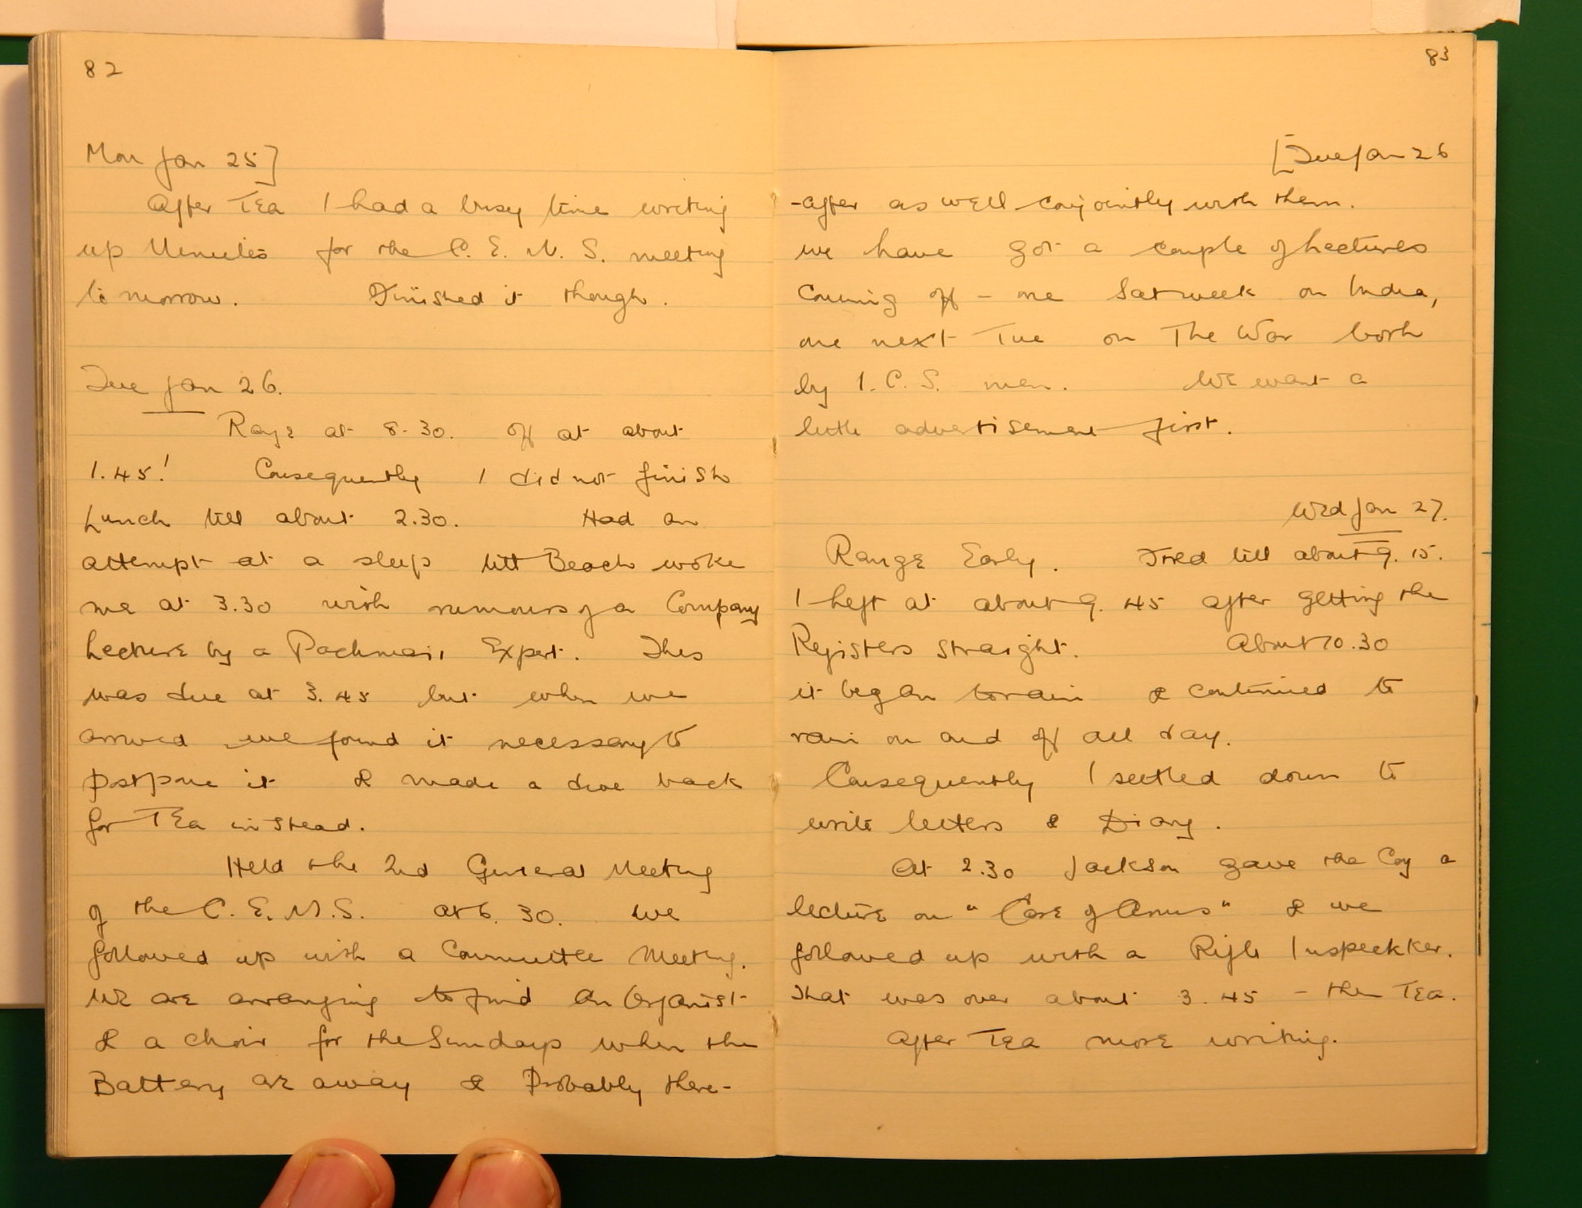 82
Mon Jan 25]
After Tea I had a busy time writing
up Minutes for the C. E. M. S. meeting
tomorrow. Finished it though.
Tue Jan 26.
Range at 8.30. off at about
1.45! Consequently I did not finish
Lunch till about 2.30. Had an
attempt at a sleep till Beach woke
me at 3.30 with rumours of a Company
Lecture by a Expert. This
was due at 3.45 but when we
arrived we found it necessary to
postpone it & made a dive back
for Tea instead.
Held the 2nd General Meeting
of the C. E. M. S. at 6.30. We
followed up with a Committee Meeting.
We are arranging to find an Organist
& a choir for the Sundays when the
Battery are away & Probably there-
83
[Tue Jan 26
-after as well conjointly with them.
we have got a couple of Lectures
coming off - one Sat week on India,
one next Tue on The War both
by I. C. S. men. We want a
little advertisement first.
Wed Jan 27.
Range Early. Fired till about 9.15.
I left at about 9.45 after getting the
Registers straight. About 10.30
it began to rain & continued to
rain on and off all day.
Consequently I settled down to
write letters & Diary.
At 2.30 Jackson gave the Coy a
lecture on "Care of Arms" & we
followed up with a Rifle
That was over about 3.45 - then Tea.
After Tea more writing.